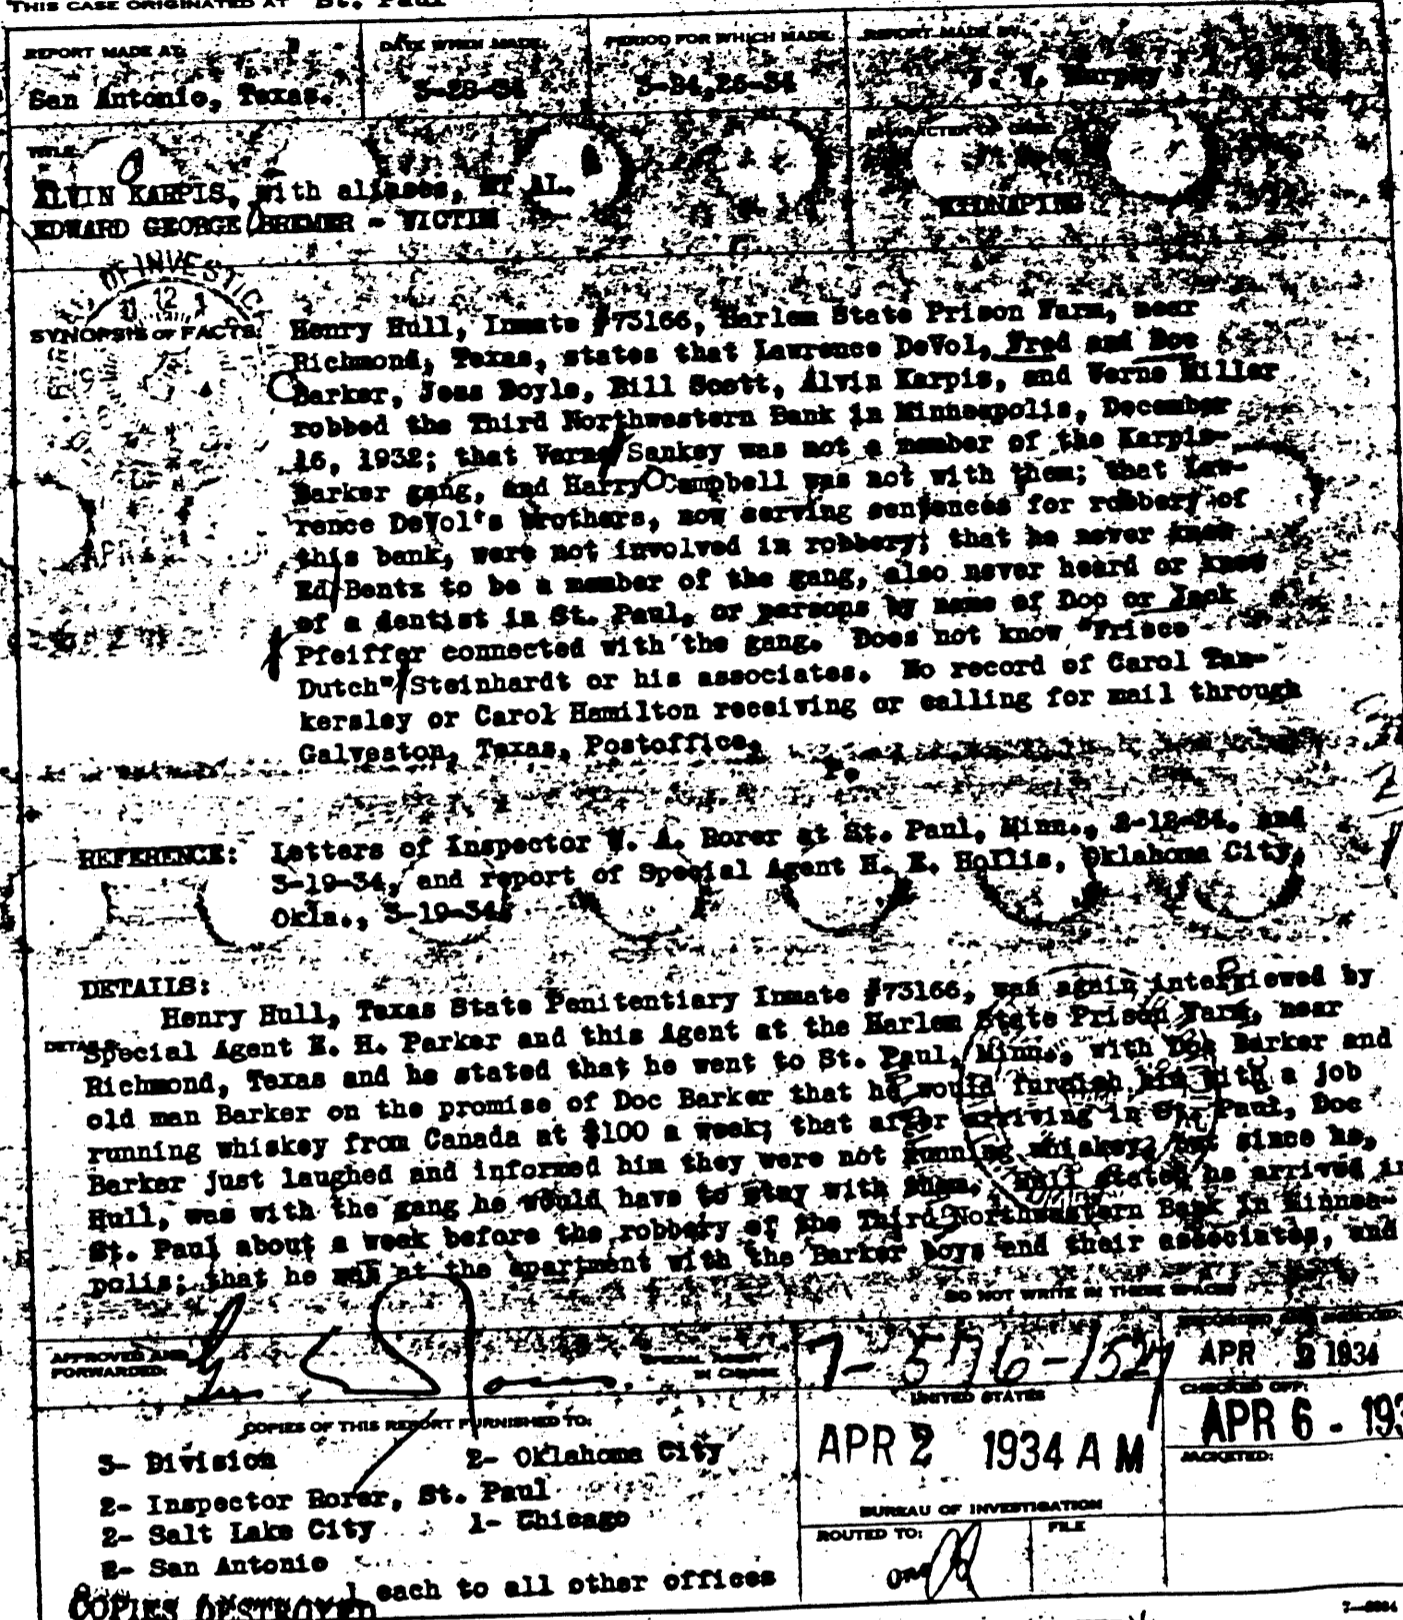 THIS CASE ORIGINATED AT St. Paul
REPORT MADE AT:
DATE WHEN MADE:
PERIOD FOR WHICH MADE:
REPORT MADE BY:
San Antonio, Texas.
3-28-34
3-24,26-34
Murphy
TITLE:
CHARACTER OF CASE:
ALVIN KARPIS, with aliases, ET AL.
EDWARD GEORGE BREMER - VICTIM
KIDNAPING
OF INVESTIG
SYNOPSIS OF FACTS:
Henry Hull, Inmate #73166, Harlem State Prison Farm, near
Richmond, Texas, states that Lawrence DeVol, Fred and Doc
Barker, Jess Doyle, Bill Scott, Alvin Karpis, and Verne Miller
robbed the Third Northwestern Bank in Minneapolis, December
16, 1932; that Verne Sankey was not a member of the Karpis-
Barker gang, and Harry Campbell was not with them; that Law-
rence DeVol's brothers, now serving sentences for robbery of
this bank, were not involved in robbery; that he never knew
Ed Bentz to be a member of the gang, also never heard or knew
of a dentist in St. Paul, or persons by name of Doc or Jack
Pfeiffer connected with the gang. Does not know "Frisco
Dutch" Steinhardt or his associates. No record of Carol Tan-
kersley or Carol Hamilton receiving or calling for mail through
Galveston, Texas, Postoffice.
P.
REFERENCE: Letters of Inspector W. A. Rorer at St. Paul, Minn., 2-12-34, and
3-19-34, and report of Special Agent H. E. Hollis, Oklahoma City,
Okla., 3-19-34.
DETAILS:
Henry Hull, Texas State Penitentiary Inmate #73166, was again interviewed by
DETAILS:
Special Agent E. H. Parker and this Agent at the Harlem State Prison Farm, near
Richmond, Texas and he stated that he went to St. Paul, Minn., with Doc Barker and
old man Barker on the promise of Doc Barker that he would furnish him with a job
running whiskey from Canada at $100 a week; that after arriving in St. Paul, Doc
Barker just laughed and informed him they were not running whiskey, but since he,
Hull, was with the gang he would have to stay with them. Hull stated he arrived in
St. Paul about a week before the robbery of the Third Northwestern Bank in Minnea-
polis; that he was at the apartment with the Barker boys and their associates, and
DO NOT WRITE IN THESE SPACES
APPROVED AND
FORWARDED:
SPECIAL AGENT
IN CHARGE
7-576-1527
RECORDED AND INDEXED:
APR 2 1934
UNITED STATES
CHECKED OFF:
APR 6 - 193
COPIES OF THIS REPORT FURNISHED TO:
APR 2 1934 A M
JACKETED:
3- Division
2- Oklahoma City
2- Inspector Rorer, St. Paul
2- Salt Lake City
1- Chicago
BUREAU OF INVESTIGATION
ROUTED TO:
FILE
2- San Antonio
1 each to all other offices
COPIES DESTROYED